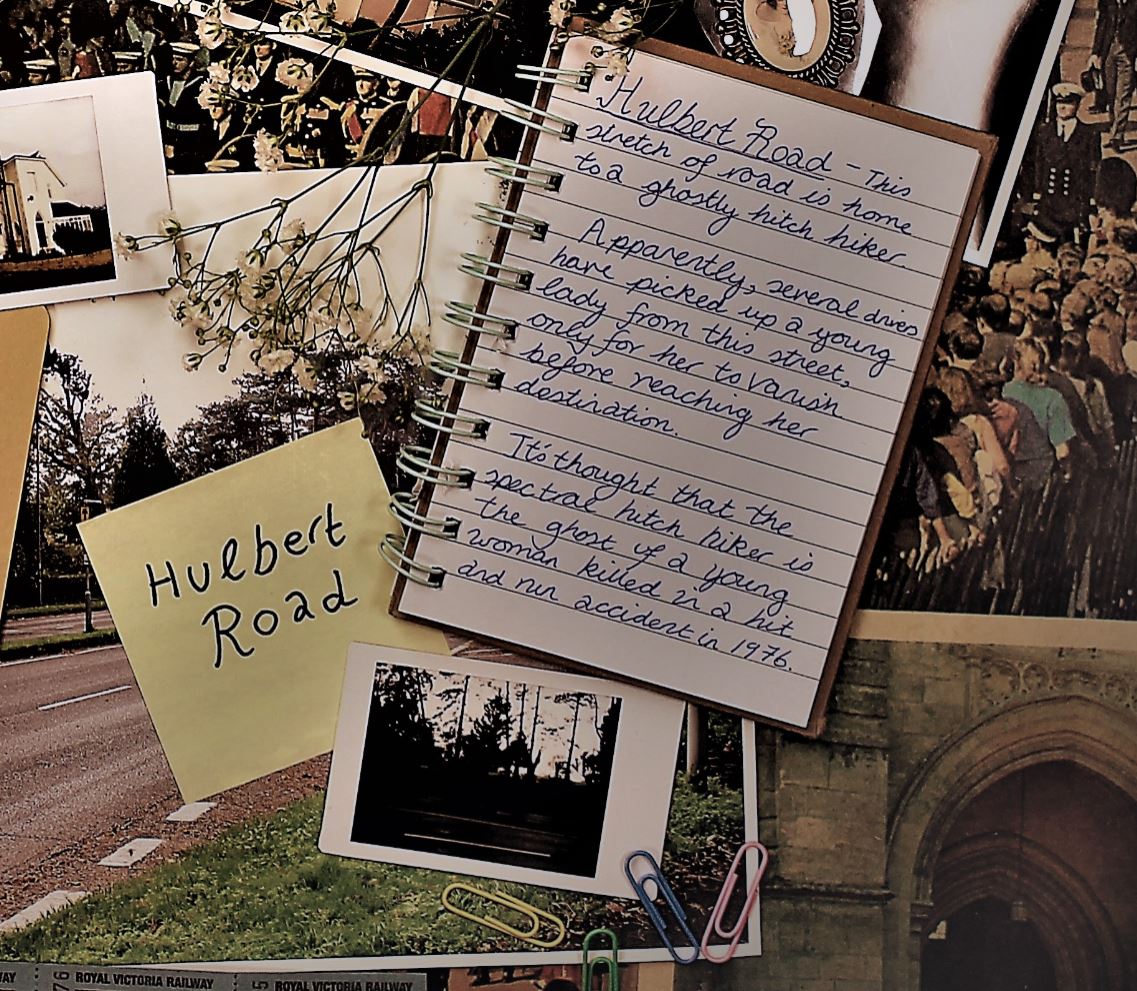 Hulbert Road - This
stretch of road is home
to a ghostly hitch hiker.
Apparently, several drivers
have picked up a young
lady from this street,
only for her to vanish
before reaching her
destination.
It's thought that the
spectral hitch hiker is
the ghost of a young
woman killed in a hit
and run accident in 1976.
Hulbert
Road
WAY
76 ROYAL VICTORIA RAILWAY
5 ROYAL VICTORIA RAILWAY